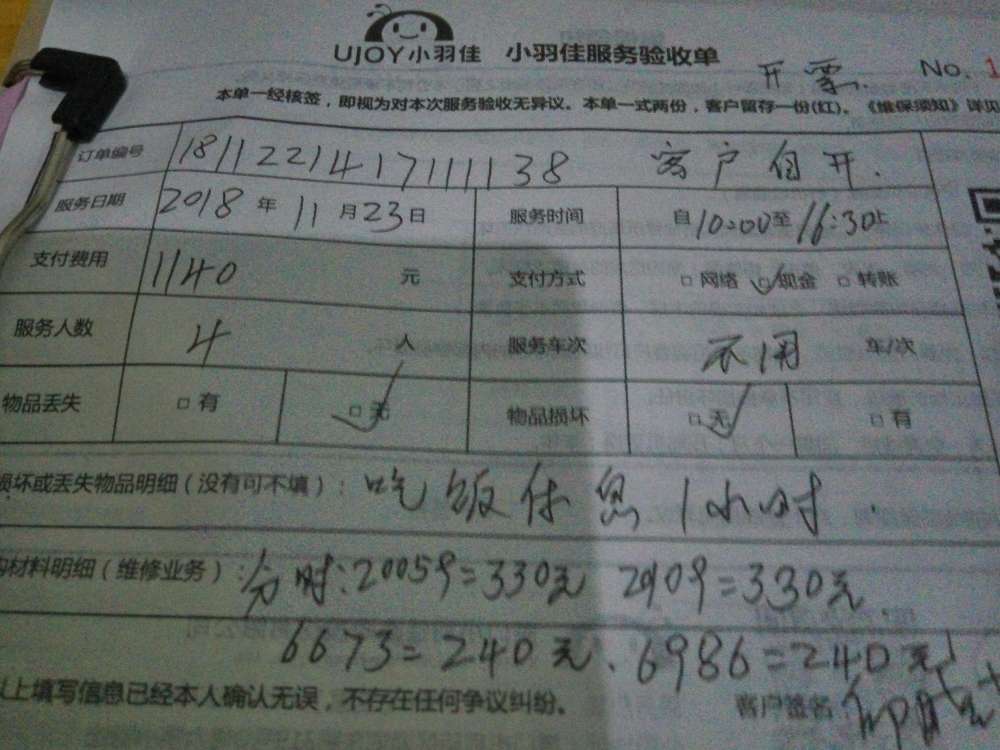 UJOY小羽佳 小羽佳服务验收单
开票. No. 1
本单一经核签，即视为对本次服务验收无异议。本单一式两份，客户留存一份(红)。《维保须知》详见
订单编号 181122141711138 客户自开.
服务日期 2018年11月23日 服务时间 自10:00至16:30止
支付费用 1140 元 支付方式 □网络 □现金 □转账
服务人数 4 人 服务车次 不用 车/次
物品丢失 □有 □无 物品损坏 □无 □有
损坏或丢失物品明细（没有可不填）：吃饭休息1小时.
材料明细（维修业务）：分时:20059=330元 2909=330元
6673=240元、6986=240元
上填写信息已经本人确认无误，不存在任何争议纠纷。 客户签名：